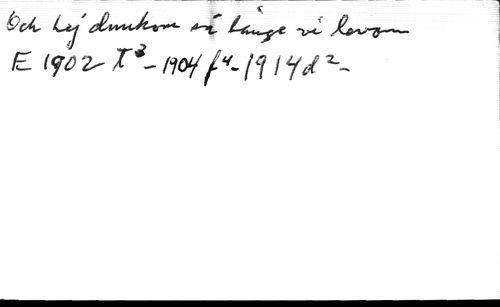 Och hej dunkom så länge vi levom
E 1902 T³ - 1904 f⁴ - 1914 d² -